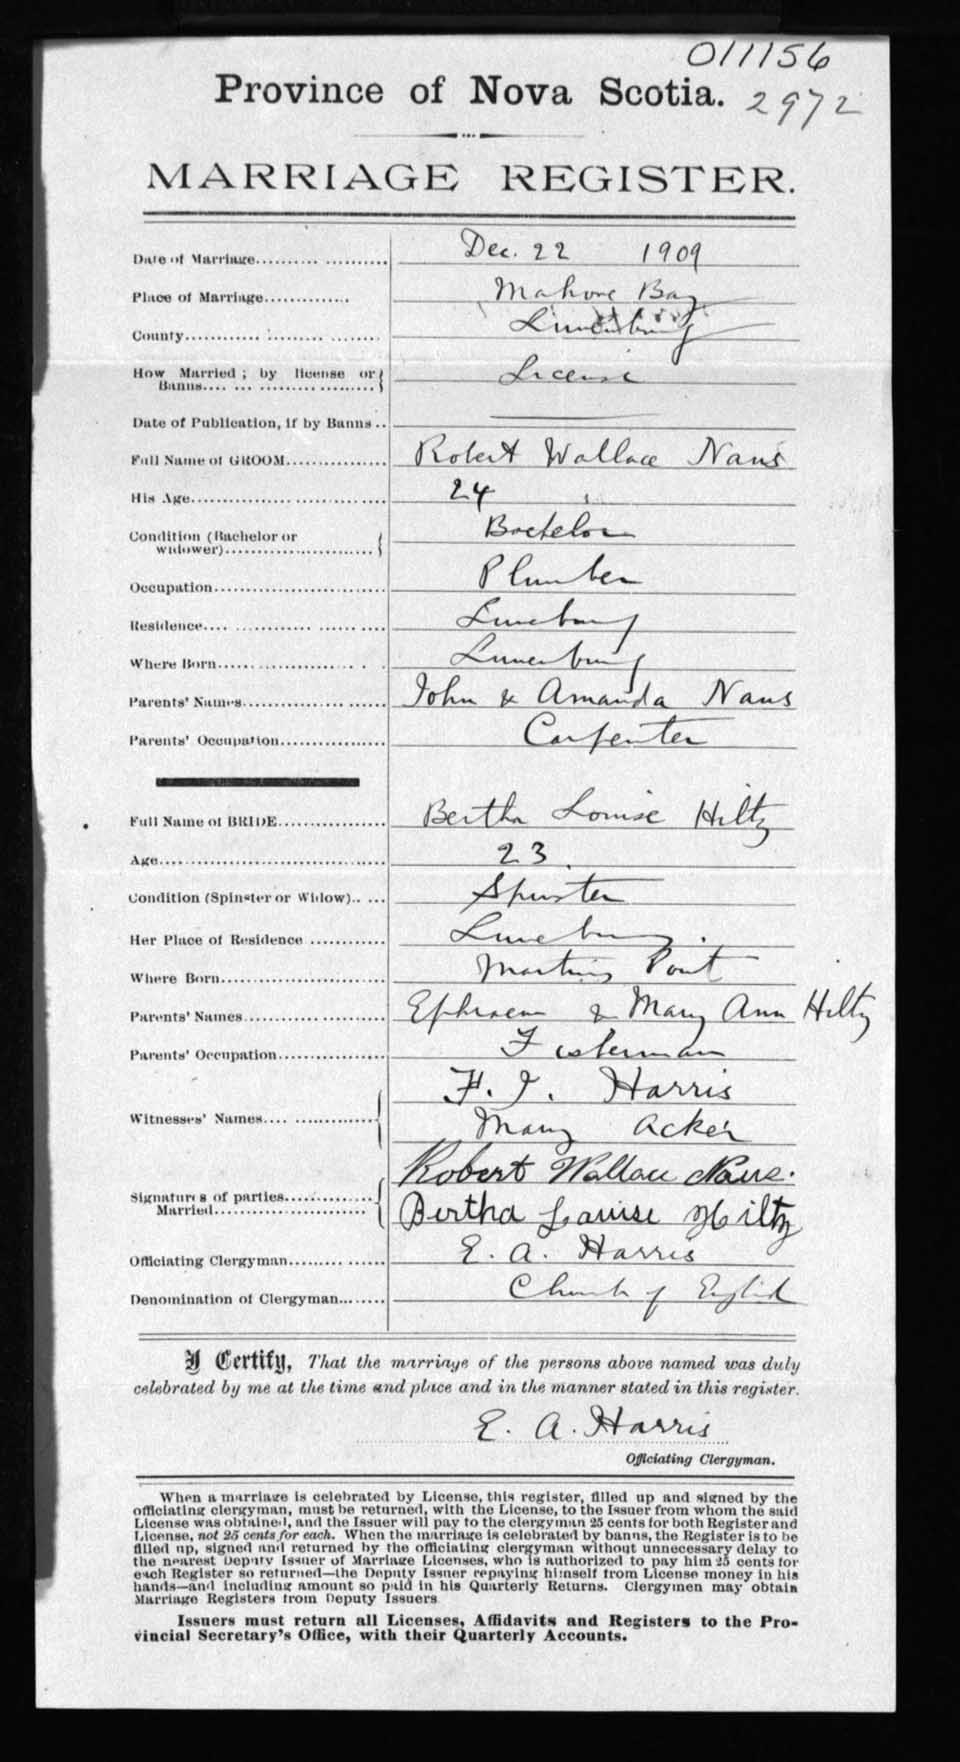 011156
Province of Nova Scotia. 2972
MARRIAGE REGISTER.
Date of Marriage.......... .......... Dec. 22 1909
Place of Marriage............. Mahone Bay
County............ ......... ........ Lunenburg
How Married ; by license or
Banns.... ... .................... License
Date of Publication, if by Banns ..
Full Name of GROOM................ Robert Wallace Naus
His Age.................................. 24
Condition (Bachelor or
widower)......................... Bachelor
Occupation............................. Plumber
Residence.... ............ ...... .... Lunenburg
Where Born....................... . . Lunenburg
Parents' Names..................... John & Amanda Naus
Parents' Occupation................ Carpenter
Full Name of BRIDE................ Bertha Louise Hiltz
Age................................... 23.
Condition (Spinster or Widow).. ... Spinster
Her Place of Residence ........... Lunenburg.
Where Born.......................... Martins Point
Parents' Names..................... Ephraem & Mary Ann Hiltz
Parents' Occupation................ Fisherman
F. J. Harris
Witnesses' Names.... ............. Mary Acker
Robert Wallace Naus.
Signatures of parties.............
Married....................... Bertha Louise Hiltz
Officiating Clergyman......... ...... E. A. Harris
Denomination of Clergyman......... Church of England
I Certify, That the marriage of the persons above named was duly
celebrated by me at the time and place and in the manner stated in this register.
E. A. Harris
Officiating Clergyman.
When a marriage is celebrated by License, this register, filled up and signed by the
officiating clergyman, must be returned, with the License, to the Issuer from whom the said
License was obtained, and the Issuer will pay to the clergyman 25 cents for both Register and
License, not 25 cents for each. When the marriage is celebrated by banns, the Register is to be
filled up, signed and returned by the officiating clergyman without unnecessary delay to
the nearest Deputy Issuer of Marriage Licenses, who is authorized to pay him 25 cents for
each Register so returned—the Deputy Issuer repaying himself from License money in his
hands—and including amount so paid in his Quarterly Returns. Clergymen may obtain
Marriage Registers from Deputy Issuers
Issuers must return all Licenses, Affidavits and Registers to the Pro-
vincial Secretary's Office, with their Quarterly Accounts.